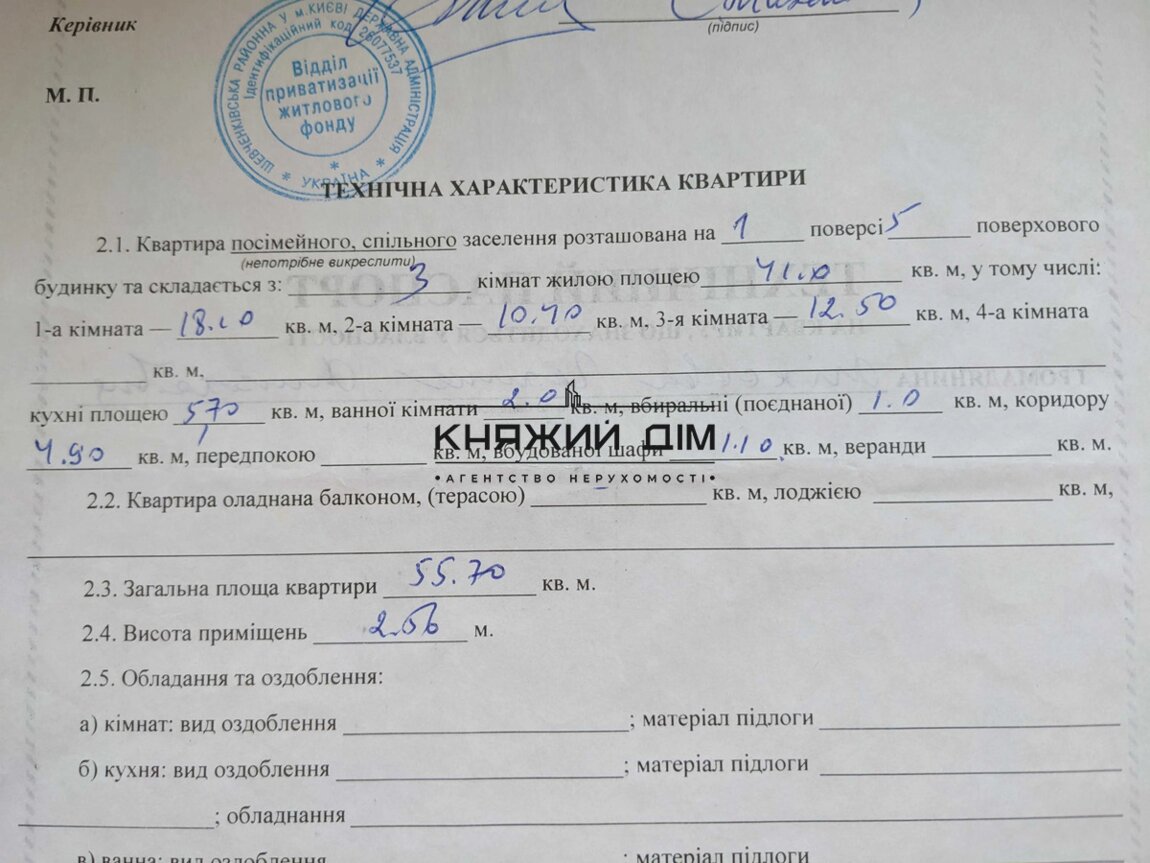 Керівник
(підпис)
М. П.
ШЕВЧЕНКІВСЬКА РАЙОННА У М.КИЄВІ ДЕРЖАВНА АДМІНІСТРАЦІЯ
Ідентифікаційний код 26077537
Відділ
приватизації
житлового
фонду
* УКРАЇНА *
ТЕХНІЧНА ХАРАКТЕРИСТИКА КВАРТИРИ
2.1. Квартира посімейного, спільного заселення розташована на 1 поверсі 5 поверхового
(непотрібне викреслити)
будинку та складається з: 3 кімнат жилою площею 41.0 кв. м, у тому числі:
1-а кімната — 18.10 кв. м, 2-а кімната — 10.40 кв. м, 3-я кімната — 12.50 кв. м, 4-а кімната
кв. м.
кухні площею 5,70 кв. м, ванної кімнати 2.0 кв. м, вбиральні (поєднаної) 1.0 кв. м, коридору
4.90 кв. м, передпокою кв. м, вбудованої шафи 1.10 кв. м, веранди кв. м.
КНЯЖИЙ ДІМ
•АГЕНТСТВО НЕРУХОМОСТІ•
2.2. Квартира оладнана балконом, (терасою) кв. м, лоджією кв. м,
2.3. Загальна площа квартири 55.70 кв. м.
2.4. Висота приміщень 2.56 м.
2.5. Обладання та оздоблення:
а) кімнат: вид оздоблення ; матеріал підлоги
б) кухня: вид оздоблення ; матеріал підлоги
; обладнання
в) ванна: вид оздоблення ; матеріал підлоги